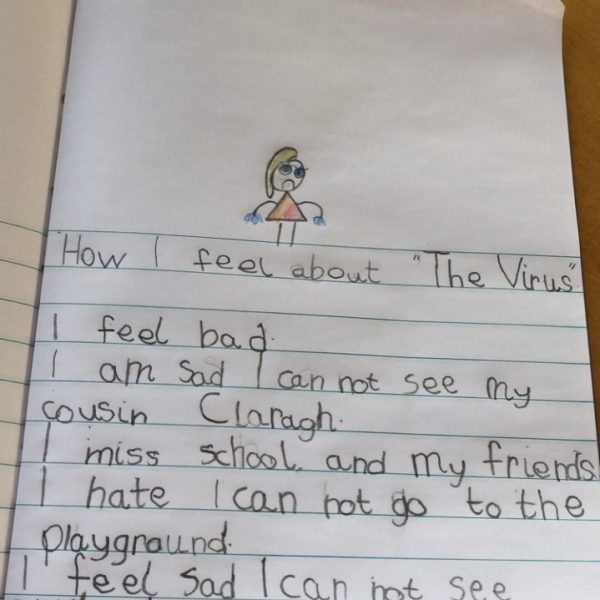 How I feel about "The Virus".
I feel bad.
I am sad I can not see my
cousin Claragh.
I miss school and my friends.
I hate I can not go to the
playground.
I feel sad I can not see